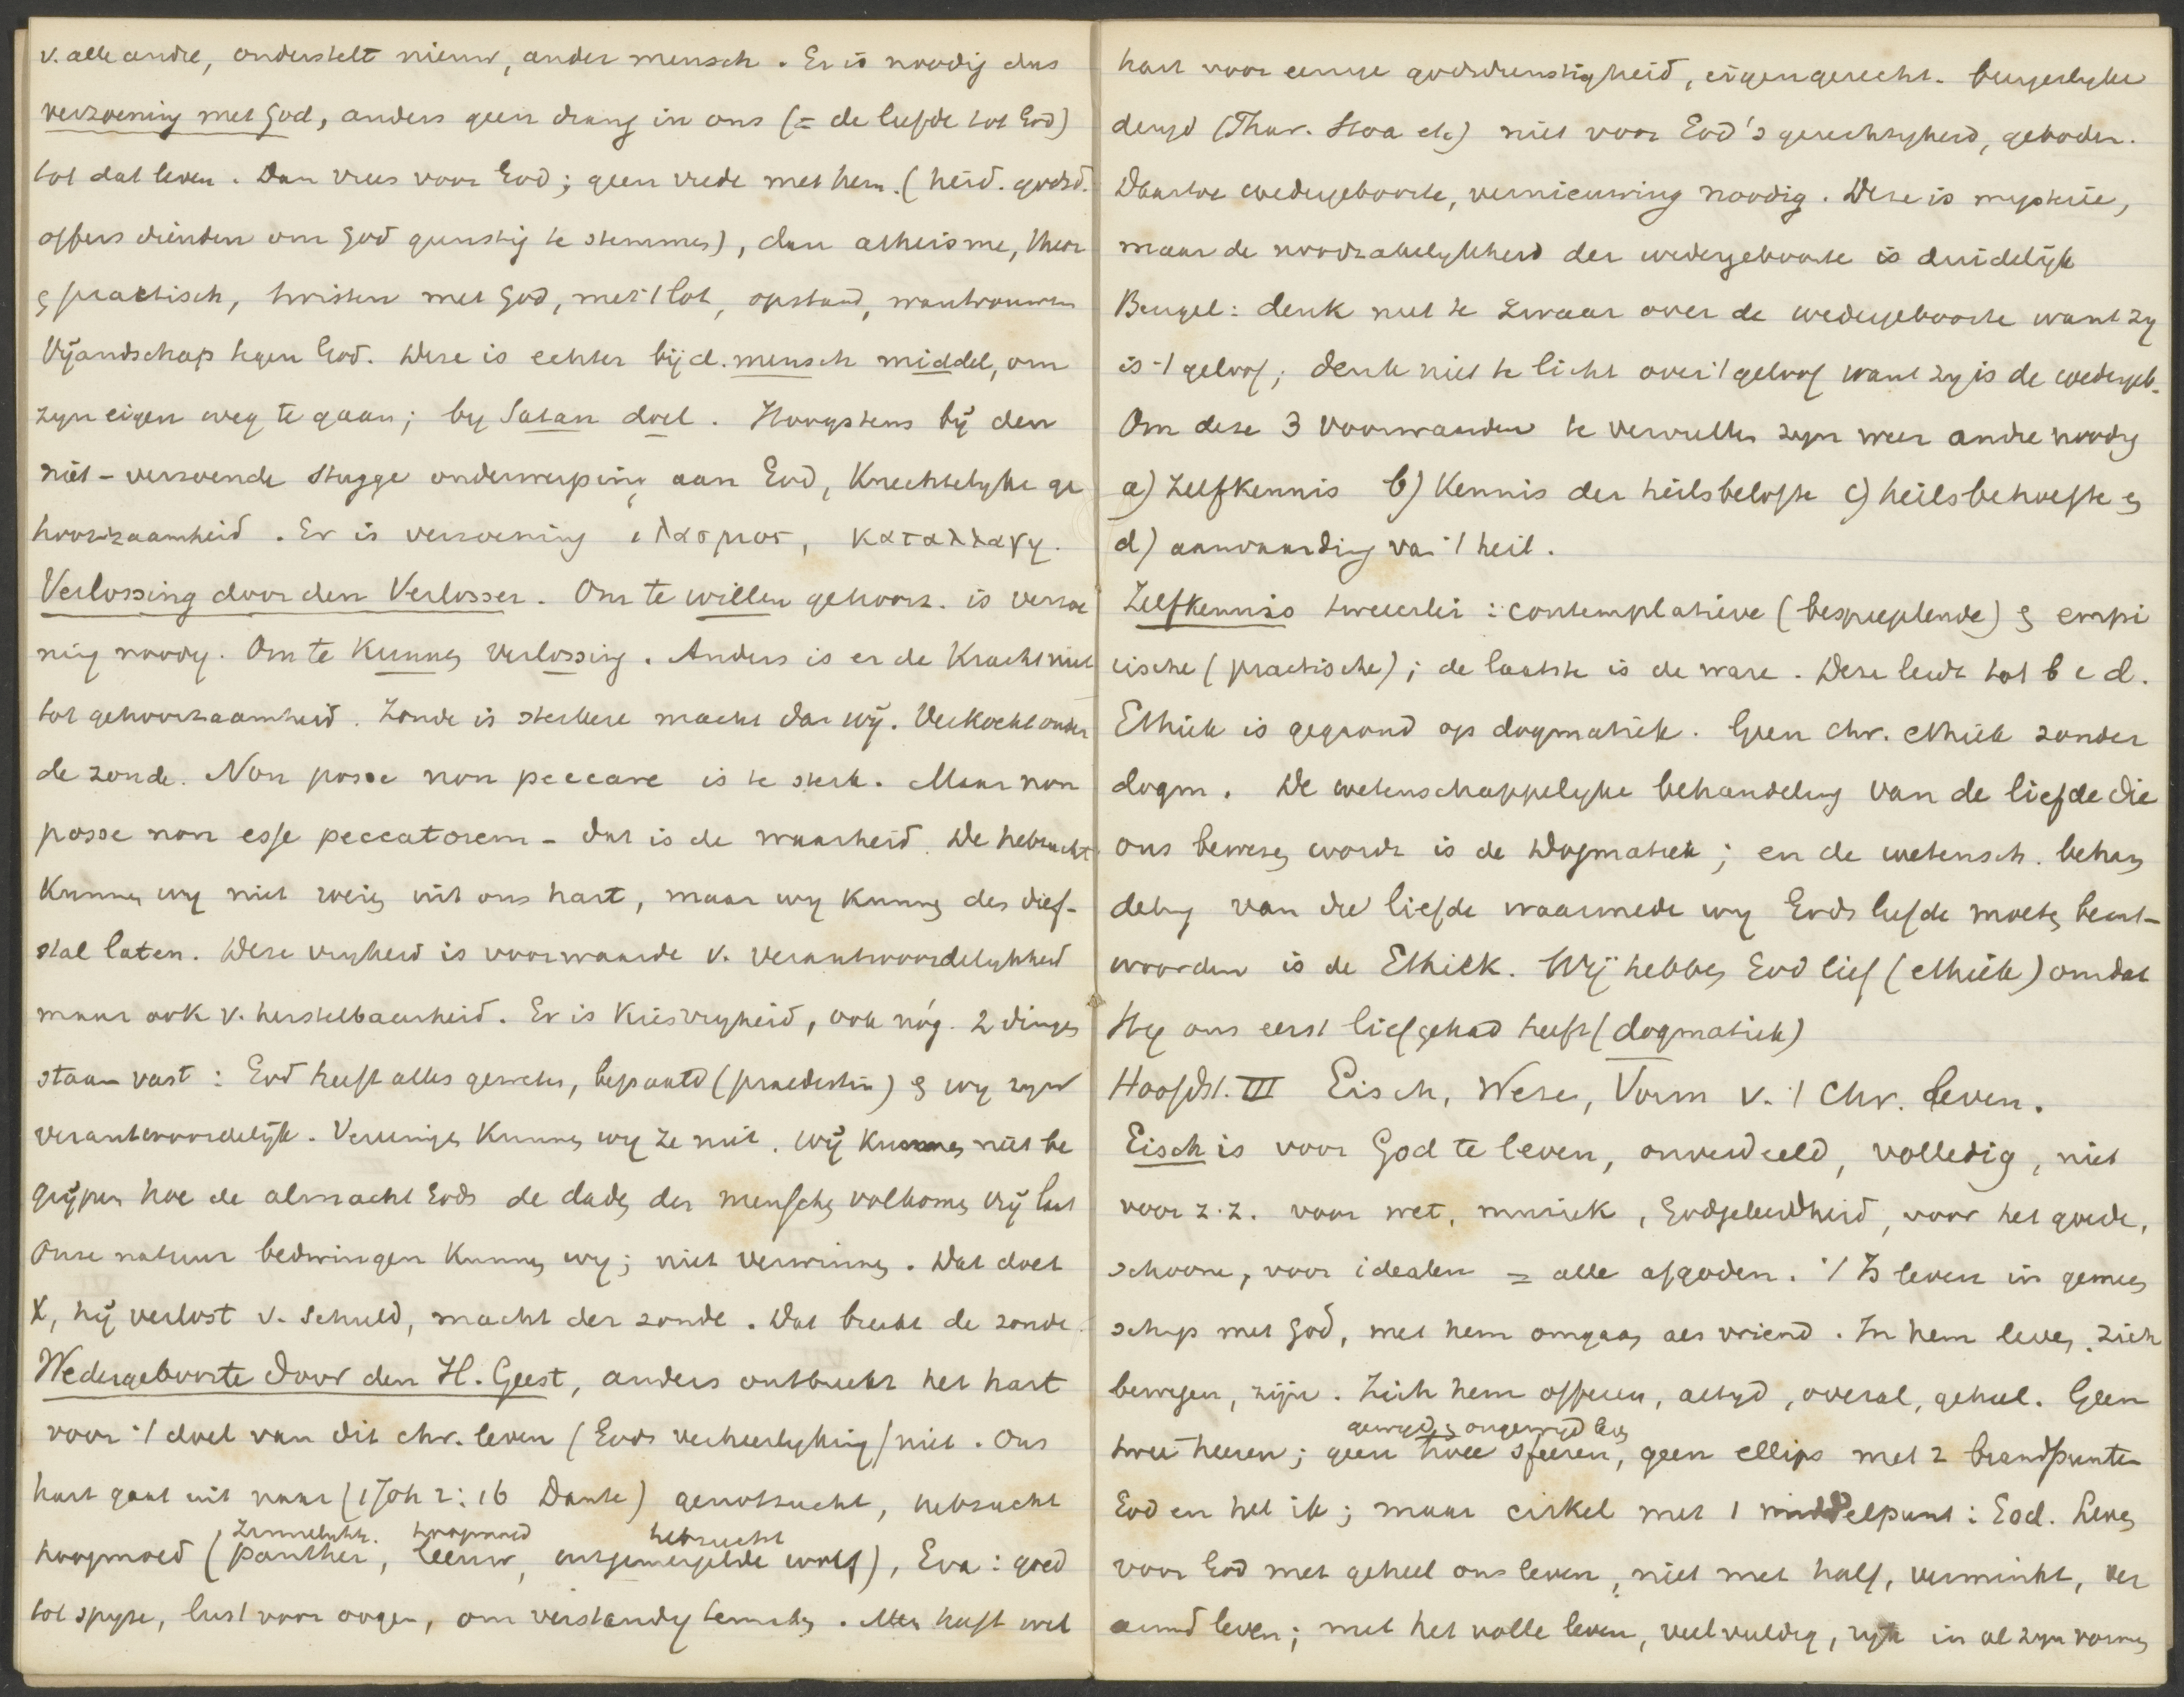 v. alle andre, onderstelt nieuw, ander mensch. Er is noodig dus
verzoening met God, anders geen drang in ons (= de liefde tot God)
tot dat leven. Dan vrees voor God; geen vrede met hem. (heid. godsd.
offers dienden om God gunstig te stemmen), dan atheisme, theor
& practisch, twisten met God, met 't lot, opstand, wantrouwen
Vijandschap tegen God. Deze is echter bij d. mensch middel, om
zyn eigen weg te gaan; by Satan doel. Hoogstens bij den
niet-verzoende stugge onderwerping aan God, Knechtelyke ge
hoorzaamheid. Er is verzoening ιλασμος, καταλλαγη.
Verlossing door den Verlosser. Om te willen gehoorz. is verzoe
ning noodig. Om te Kunnen Verlossing. Anders is er de Kracht niet
tot gehoorzaamheid. Zonde is sterkere macht dan wij. Verkocht onder
de zonde. Non posse non peccare is te sterk. Maar non
posse non esse peccatorem - dat is de waarheid. De hebzucht
Kunnen wy niet weren uit ons hart, maar wy Kunnen den dief-
stal laten. Deze vryheid is voorwaarde v. verantwoordelykheid
maar ook v. herstelbaarheid. Er is Kiesvryheid, ook nóg. 2 dingen
staan vast: God heeft alles geweten, bepaald (praedestin) & wy zyn
verantwoordelijk. Vereenigen Kunnen wy ze niet. Wij Kunnen niet be
grijpen hoe de almacht Gods de daden der menschen volkomen vrij laat
Onze natuur bedwingen Kunnen wy; niet verwinnen. Dat doet
X, hij verlost v. schuld, macht der zonde. Dat breekt de zonde.
Wedergeboorte door den H. Geest, anders ontbreekt het hart
voor 't doel van dit chr. leven (Gods verheerlyking) niet. Ons
hart gaat uit naar (1 Joh 2:16 Dante) genotzucht, hebzucht
zinnelykh. hoogmoed hebzucht
hoogmoed (panther, leeuw, uitgemergelde wolf), Eva: goed
tot spyze, lust voor oogen, om verstandig te maken. Men heeft wel
hart voor eenige godsdienstigheid, eigengerecht. burgerlyke
deugd (Thur. Stoa etc) niet voor God's gerechtigheid, geboden.
Daartoe wedergeboorte, vernieuwing noodig. Deze is mysterie,
maar de noodzakelykheid der wedergeboorte is duidelijk
Bengel: denk niet te zwaar over de wedergeboorte want zy
is 't geloof; denk niet te licht over 't geloof want zy is de wedergeb.
Om deze 3 voorwaarden te vervullen zyn weer andre noodig
a) Zelfkennis b) Kennis der heilsbelofte c) heilsbehoefte &
d) aanvaarding van 't heil.
Zelfkennis tweeerlei: contemplatieve (bespiegelende) & empi
rische (practische); de laatste is de ware. Deze leidt tot b c d.
Ethiek is gegrond op dogmatiek. Geen chr. ethiek zonder
dogm. De wetenschappelyke behandeling van de liefde die
ons bewezen wordt is de Dogmatiek; en de wetensch. behan
deling van die liefde waarmede wy Gods liefde moeten beant-
woorden is de Ethiek. Wij hebben God lief (ethiek) omdat
Hy ons eerst liefgehad heeft (dogmatiek)
Hoofdst. III Eisch, Wezen, Vorm v. 't Chr. leven.
Eisch is voor God te leven, onverdeeld, volledig, niet
voor z.z. voor wet, muziek, Godgeleerdheid, voor het goede,
schoone, voor idealen = alle afgoden. 't Is leven in gemeen
schap met God, met hem omgaan als vriend. In hem leven, zich
bewegen, zijn. Zich hem offeren, altyd, overal, geheel. Geen
gewyd & ongewyd leven
twee heeren; geen twee sfeeren, geen ellips met 2 brandpunten
God en het ik; maar cirkel met 1 middelpunt: God. Leven
voor God met geheel ons leven, niet met half, verminkt, ver
armd leven; met het volle leven, veelvuldig, ryk in al zyn vormen